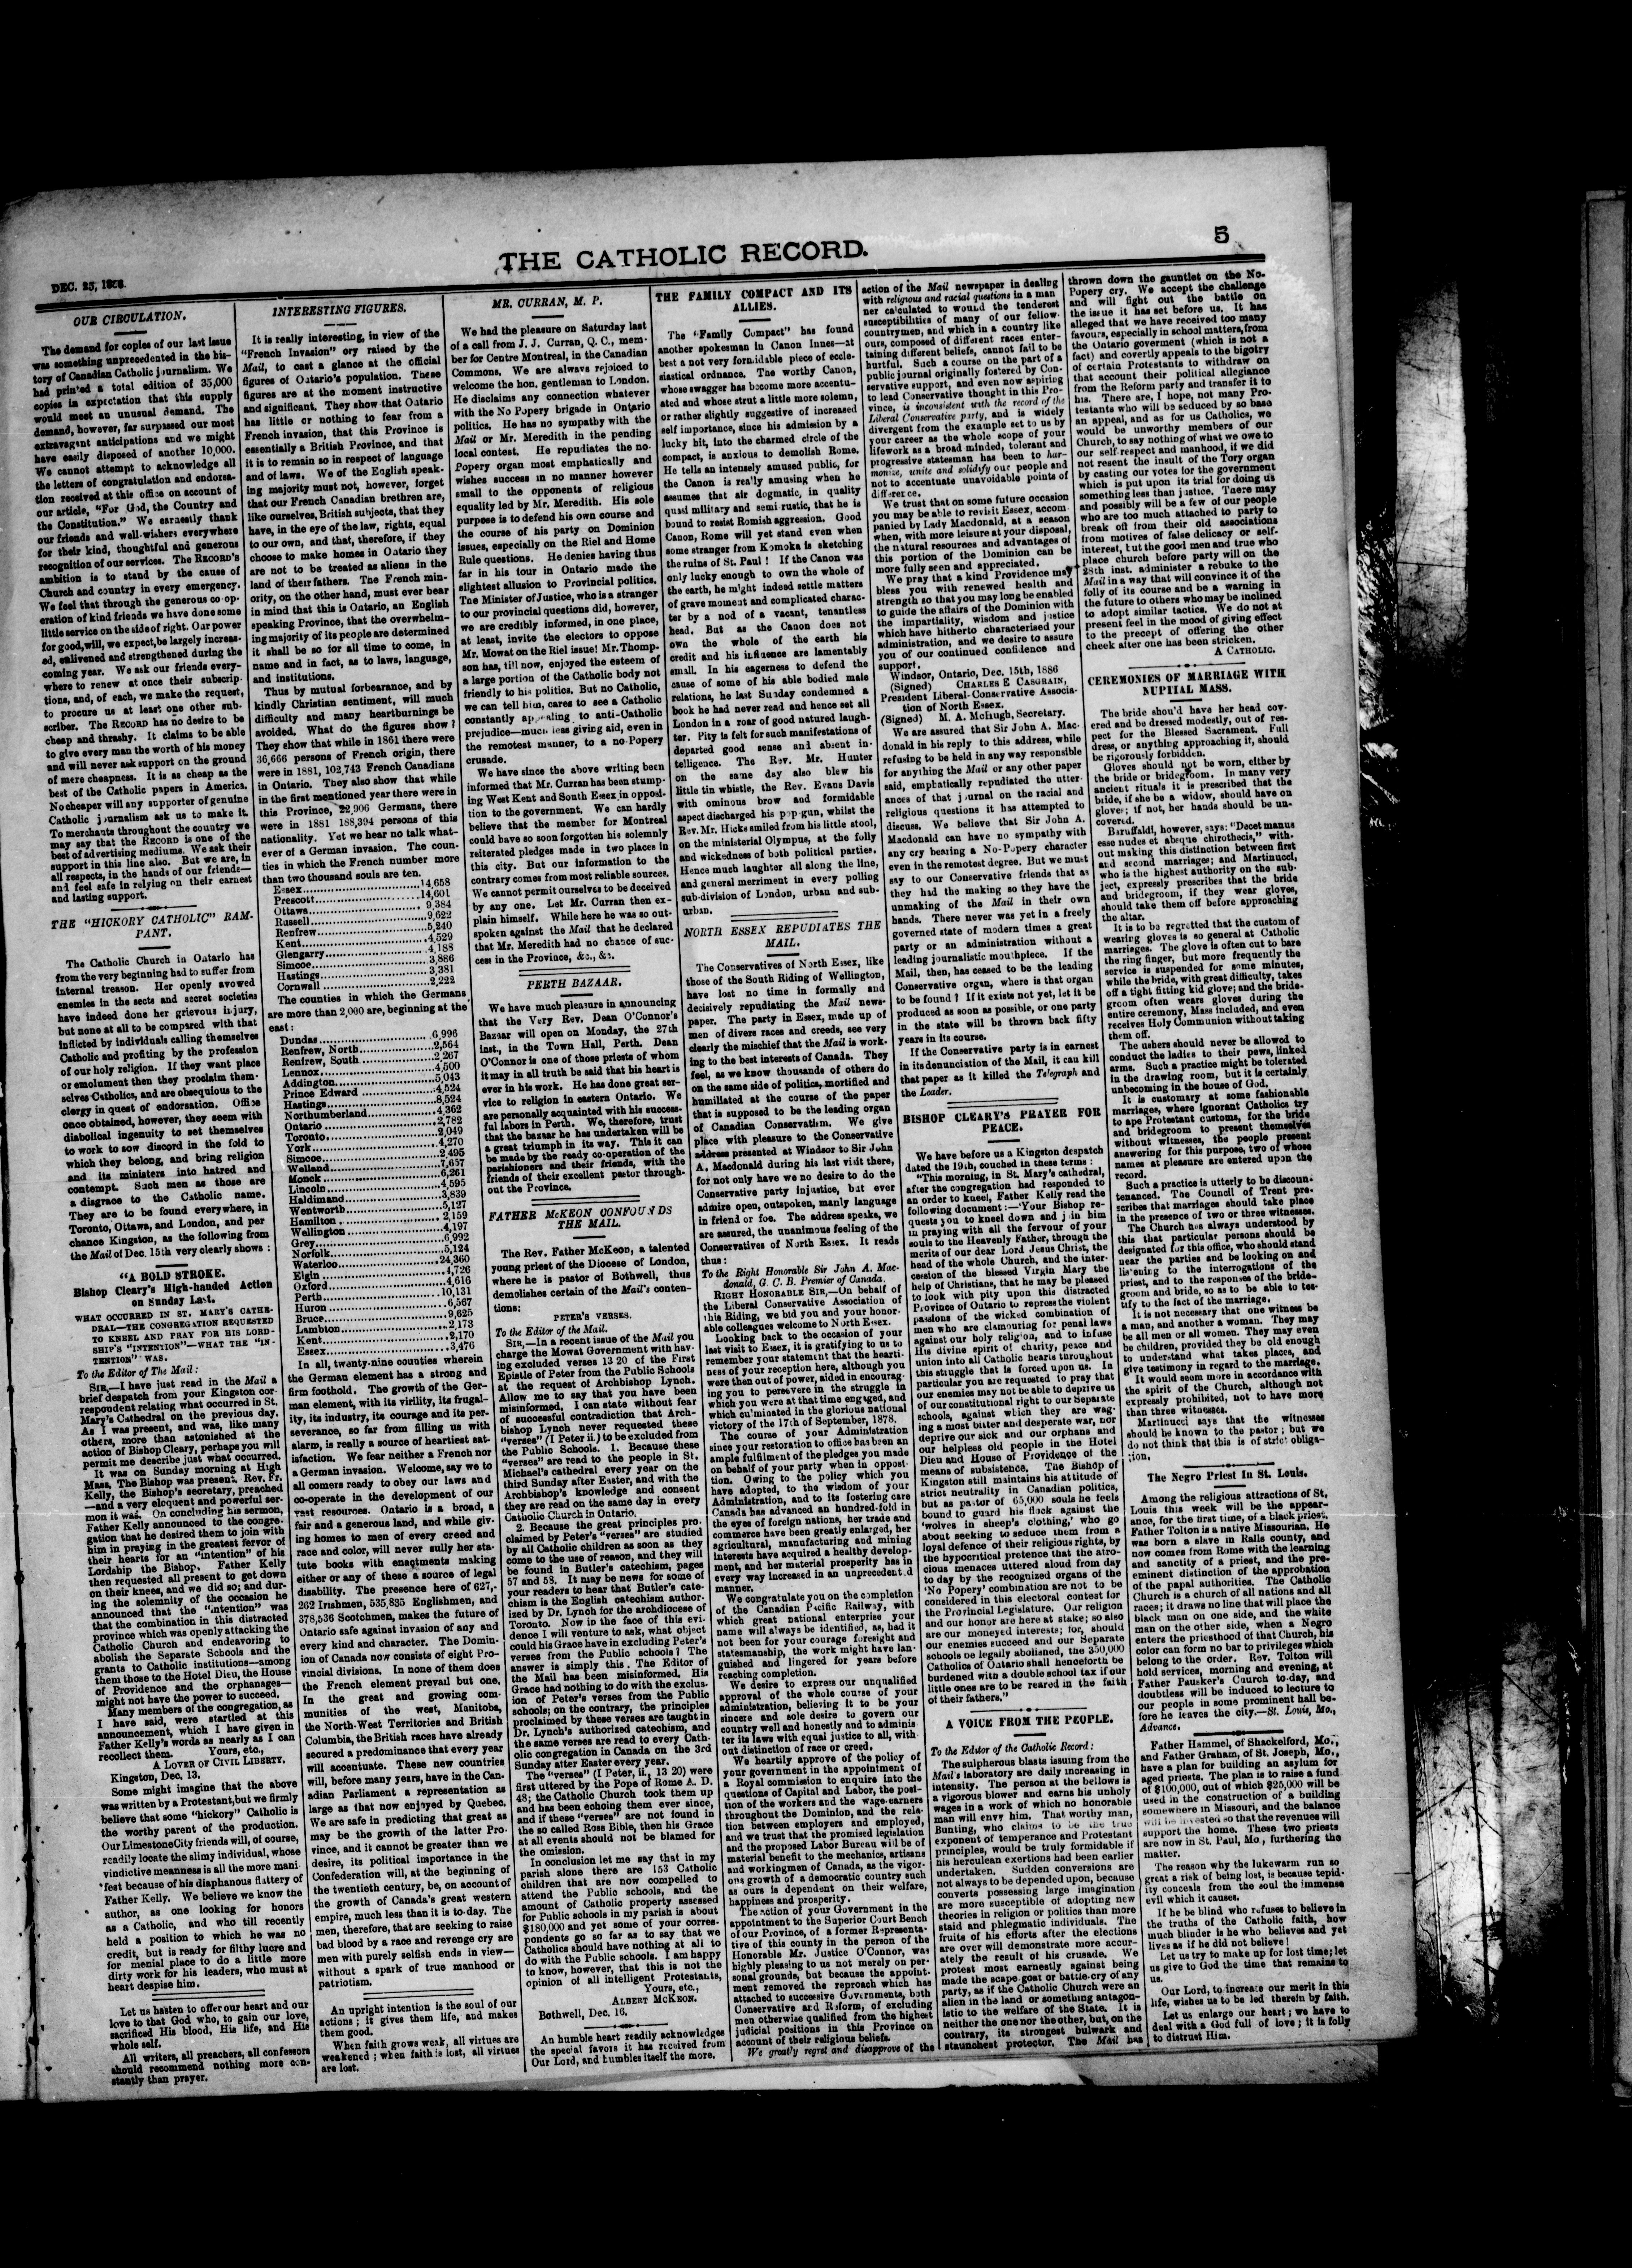 DEC. 25, 1886.
THE CATHOLIC RECORD.
5
OUR CIRCULATION.
The demand for copies of our last issue
was something unprecedented in the his-
tory of Canadian Catholic journalism. We
had printed a total edition of 35,000
copies in expectation that this supply
would meet an unusual demand. The
demand, however, far surpassed our most
extravagant anticipations and we might
have easily disposed of another 10,000.
We cannot attempt to acknowledge all
the letters of congratulation and endorsa-
tion received at this office on account of
our article, "For God, the Country and
the Constitution." We earnestly thank
our friends and well-wishers everywhere
for their kind, thoughtful and generous
recognition of our services. The RECORD'S
ambition is to stand by the cause of
Church and country in every emergency.
We feel that through the generous co-op-
eration of kind friends we have done some
little service on the side of right. Our power
for good, will, we expect, be largely increas-
ed, enlivened and strengthened during the
coming year. We ask our friends every-
where to renew at once their subscrip-
tions, and, of each, we make the request,
to procure us at least one other sub-
scriber. The RECORD has no desire to be
cheap and thrashy. It claims to be able
to give every man the worth of his money
and will never ask support on the ground
of mere cheapness. It is as cheap as the
best of the Catholic papers in America.
No cheaper will any supporter of genuine
Catholic journalism ask us to make it.
To merchants throughout the country we
may say that the RECORD is one of the
best of advertising mediums. We ask their
support in this line also. But we are, in
all respects, in the hands of our friends—
and feel safe in relying on their earnest
and lasting support.
THE "HICKORY CATHOLIC" RAM-
PANT.
The Catholic Church in Ontario has
from the very beginning had to suffer from
internal treason. Her openly avowed
enemies in the sects and secret societies
have indeed done her grievous injury,
but none at all to be compared with that
inflicted by individuals calling themselves
Catholic and profiting by the profession
of our holy religion. If they want place
or emolument then they proclaim them-
selves Catholics, and are obsequious to the
clergy in quest of endorsation. Office
once obtained, however, they seem with
diabolical ingenuity to set themselves
to work to sow discord in the fold to
which they belong, and bring religion
and its ministers into hatred and
contempt. Such men as those are
a disgrace to the Catholic name.
They are to be found everywhere, in
Toronto, Ottawa, and London, and per
chance Kingston, as the following from
the Mail of Dec. 15th very clearly shows:
"A BOLD STROKE.
Bishop Cleary's High-handed Action
on Sunday Last.
WHAT OCCURRED IN ST. MARY'S CATHE-
DRAL—THE CONGREGATION REQUESTED
TO KNEEL AND PRAY FOR HIS LORD-
SHIP'S "INTENTION"—WHAT THE "IN-
TENTION" WAS.
To the Editor of The Mail:
SIR,—I have just read in the Mail a
brief despatch from your Kingston cor-
respondent relating what occurred in St.
Mary's Cathedral on the previous day.
As I was present, and was, like many
others, more than astonished at the
action of Bishop Cleary, perhaps you will
permit me describe just what occurred.
It was on Sunday morning at High
Mass. The Bishop was present. Rev. Fr.
Kelly, the Bishop's secretary, preached
—and a very eloquent and powerful ser-
mon it was. On concluding his sermon,
Father Kelly announced to the congre-
gation that he desired them to join with
him in praying in the greatest fervor of
their hearts for an "intention" of his
Lordship the Bishop. Father Kelly
then requested all present to get down
on their knees, and we did so; and dur-
ing the solemnity of the occasion he
announced that the "intention" was
that the combination in this distracted
province which was openly attacking the
Catholic Church and endeavoring to
abolish the Separate Schools and the
grants to Catholic institutions—among
them those to the Hotel Dieu, the House
of Providence and the orphanages—
might not have the power to succeed.
Many members of the congregation, as
I have said, were startled at this
announcement, which I have given in
Father Kelly's words as nearly as I can
recollect them. Yours, etc.,
A LOVER OF CIVIL LIBERTY.
Kingston, Dec. 13.
Some might imagine that the above
was written by a Protestant, but we firmly
believe that some "hickory" Catholic is
the worthy parent of the production.
Our Limestone City friends will, of course,
readily locate the slimy individual, whose
vindictive meanness is all the more mani-
fest because of his diaphanous flattery of
Father Kelly. We believe we know the
author, as one looking for honors
as a Catholic, and who till recently
held a position to which he was no
credit, but is ready for filthy lucre and
for menial place to do a little more
dirty work for his leaders, who must at
heart despise him.
Let us hasten to offer our heart and our
love to that God who, to gain our love,
sacrificed His blood, His life, and His
whole self.
All writers, all preachers, all confessors
should recommend nothing more con-
stantly than prayer.
INTERESTING FIGURES.
It is really interesting, in view of the
"French Invasion" cry raised by the
Mail, to cast a glance at the official
figures of Ontario's population. These
figures are at the moment instructive
and significant. They show that Ontario
has little or nothing to fear from a
French invasion, that this Province is
essentially a British Province, and that
it is to remain so in respect of language
and of laws. We of the English speak-
ing majority must not, however, forget
that our French Canadian brethren are,
like ourselves, British subjects, that they
have, in the eye of the law, rights, equal
to our own, and that, therefore, if they
choose to make homes in Ontario they
are not to be treated as aliens in the
land of their fathers. The French min-
ority, on the other hand, must ever bear
in mind that this is Ontario, an English
speaking Province, that the overwhelm-
ing majority of its people are determined
it shall be so for all time to come, in
name and in fact, as to laws, language,
and institutions.
Thus by mutual forbearance, and by
kindly Christian sentiment, will much
difficulty and many heartburnings be
avoided. What do the figures show?
They show that while in 1861 there were
36,666 persons of French origin, there
were in 1881, 102,743 French Canadians
in Ontario. They also show that while
in the first mentioned year there were in
this Province, 22,906 Germans, there
were in 1881 188,394 persons of this
nationality. Yet we hear no talk what-
ever of a German invasion. The coun-
ties in which the French number more
than two thousand souls are ten.
Essex 14,658
Prescott 14,601
Ottawa 9,384
Russell 9,622
Renfrew 5,240
Kent 4,529
Glengarry 4,188
Simcoe 3,886
Hastings 3,381
Cornwall 2,222
The counties in which the Germans
are more than 2,000 are, beginning at the
east:
Dundas 6,996
Renfrew, North 2,564
Renfrew, South 2,267
Lennox 4,500
Addington 5,043
Prince Edward 4,524
Hastings 8,524
Northumberland 4,362
Ontario 2,782
Toronto 2,049
York 4,270
Simcoe 2,495
Welland 7,657
Monck 6,261
Lincoln 4,595
Haldimand 3,839
Wentworth 5,127
Hamilton 2,159
Wellington 4,197
Grey 6,992
Norfolk 5,124
Waterloo 24,360
Elgin 4,726
Oxford 4,616
Perth 10,131
Huron 6,567
Bruce 9,625
Lambton 2,173
Kent 2,170
Essex 3,476
In all, twenty-nine counties wherein
the German element has a strong and
firm foothold. The growth of the Ger-
man element, with its virility, its frugal-
ity, its industry, its courage and its per-
severance, so far from filling us with
alarm, is really a source of heartiest sat-
isfaction. We fear neither a French nor
a German invasion. Welcome, say we to
all comers ready to obey our laws and
co-operate in the development of our
vast resources. Ontario is a broad, a
fair and a generous land, and while giv-
ing homes to men of every creed and
race and color, will never sully her sta-
tute books with enactments making
either or any of these a source of legal
disability. The presence here of 627,-
262 Irishmen, 535,835 Englishmen, and
378,536 Scotchmen, makes the future of
Ontario safe against invasion of any and
every kind and character. The Domin-
ion of Canada now consists of eight Pro-
vincial divisions. In none of them does
the French element prevail but one.
In the great and growing com-
munities of the west, Manitoba,
the North-West Territories and British
Columbia, the British races have already
secured a predominance that every year
will accentuate. These new countries
will, before many years, have in the Can-
adian Parliament a representation as
large as that now enjoyed by Quebec.
We are safe in predicting that great as
may be the growth of the latter Pro-
vince, and it cannot be greater than we
desire, its political importance in the
Confederation will, at the beginning of
the twentieth century, be, on account of
the growth of Canada's great western
empire, much less than it is to-day. The
men, therefore, that are seeking to raise
bad blood by a race and revenge cry are
men with purely selfish ends in view—
without a spark of true manhood or
patriotism.
An upright intention is the soul of our
actions; it gives them life, and makes
them good.
When faith grows weak, all virtues are
weakened; when faith is lost, all virtues
are lost.
MR. CURRAN, M. P.
We had the pleasure on Saturday last
of a call from J. J. Curran, Q. C., mem-
ber for Centre Montreal, in the Canadian
Commons. We are always rejoiced to
welcome the hon. gentleman to London.
He disclaims any connection whatever
with the No Popery brigade in Ontario
politics. He has no sympathy with the
Mail or Mr. Meredith in the pending
local contest. He repudiates the no-
Popery organ most emphatically and
wishes success in no manner however
small to the opponents of religious
equality led by Mr. Meredith. His sole
purpose is to defend his own course and
the course of his party on Dominion
issues, especially on the Riel and Home
Rule questions. He denies having thus
far in his tour in Ontario made the
slightest allusion to Provincial politics.
The Minister of Justice, who is a stranger
to our provincial questions did, however,
we are credibly informed, in one place,
at least, invite the electors to oppose
Mr. Mowat on the Riel issue! Mr. Thomp-
son has, till now, enjoyed the esteem of
a large portion of the Catholic body not
friendly to his politics. But no Catholic,
we can tell him, cares to see a Catholic
constantly appealing to anti-Catholic
prejudice—much less giving aid, even in
the remotest manner, to a no-Popery
crusade.
We have since the above writing been
informed that Mr. Curran has been stump-
ing West Kent and South Essex in opposi-
tion to the government. We can hardly
believe that the member for Montreal
could have so soon forgotten his solemnly
reiterated pledges made in two places in
this city. But our information to the
contrary comes from most reliable sources.
We cannot permit ourselves to be deceived
by any one. Let Mr. Curran then ex-
plain himself. While here he was so out-
spoken against the Mail that he declared
that Mr. Meredith had no chance of suc-
cess in the Province, &c., &c.
PERTH BAZAAR.
We have much pleasure in announcing
that the Very Rev. Dean O'Connor's
Bazaar will open on Monday, the 27th
inst., in the Town Hall, Perth. Dean
O'Connor is one of those priests of whom
it may in all truth be said that his heart is
ever in his work. He has done great ser-
vice to religion in eastern Ontario. We
are personally acquainted with his success-
ful labors in Perth. We, therefore, trust
that the bazaar he has undertaken will be
a great triumph in its way. This it can
be made by the ready co-operation of the
parishioners and their friends, with the
friends of their excellent pastor through-
out the Province.
FATHER McKEON CONFOUNDS
THE MAIL.
The Rev. Father McKeon, a talented
young priest of the Diocese of London,
where he is pastor of Bothwell, thus
demolishes certain of the Mail's conten-
tions:
PETER'S VERSES.
To the Editor of the Mail.
SIR,—In a recent issue of the Mail you
charge the Mowat Government with hav-
ing excluded verses 13 20 of the First
Epistle of Peter from the Public Schools
at the request of Archbishop Lynch.
Allow me to say that you have been
misinformed. I can state without fear
of successful contradiction that Arch-
bishop Lynch never requested these
"verses" (I Peter ii.) to be excluded from
the Public Schools. 1. Because these
"verses" are read to the people in St.
Michael's cathedral every year on the
third Sunday after Easter, and with the
Archbishop's knowledge and consent
they are read on the same day in every
Catholic Church in Ontario.
2. Because the great principles pro-
claimed by Peter's "verses" are studied
by all Catholic children as soon as they
come to the use of reason, and they will
be found in Butler's catechism, pages
57 and 58. It may be news for some of
your readers to hear that Butler's cate-
chism is the English catechism author-
ized by Dr. Lynch for the archdiocese of
Toronto. Now in the face of this evi-
dence I will venture to ask, what object
could his Grace have in excluding Peter's
verses from the Public schools? The
answer is simply this. The Editor of
the Mail has been misinformed. His
Grace had nothing to do with the exclus-
ion of Peter's verses from the Public
schools; on the contrary, the principles
proclaimed by these verses are taught in
Dr. Lynch's authorized catechism, and
the same verses are read to every Cath-
olic congregation in Canada on the 3rd
Sunday after Easter every year.
The "verses" (I Peter, ii., 13 20) were
first uttered by the Pope of Rome A. D.
48; the Catholic Church took them up
and has been echoing them ever since,
and if these "verses" are not found in
the so called Ross Bible, then his Grace
at all events should not be blamed for
the omission.
In conclusion let me say that in my
parish alone there are 153 Catholic
children that are now compelled to
attend the Public schools, and the
amount of Catholic property assessed
for Public schools in my parish is about
$180,000 and yet some of your corres-
pondents go so far as to say that we
Catholics should have nothing at all to
do with the Public schools. I am happy
to know, however, that this is not the
opinion of all intelligent Protestants,
Yours, etc.,
ALBERT McKEON.
Bothwell, Dec. 16.
An humble heart readily acknowledges
the special favors it has received from
Our Lord, and humbles itself the more.
THE FAMILY COMPACT AND ITS
ALLIES.
The "Family Compact" has found
another spokesman in Canon Innes—at
best a not very formidable piece of eccle-
siastical ordnance. The worthy Canon,
whose swagger has become more accentu-
ated and whose strut a little more solemn,
or rather slightly suggestive of increased
self importance, since his admission by a
lucky hit, into the charmed circle of the
compact, is anxious to demolish Rome.
He tells an intensely amused public, for
the Canon is really amusing when he
assumes that air dogmatic, in quality
quasi military and semi rustic, that he is
bound to resist Romish aggression. Good
Canon, Rome will yet stand even when
some stranger from Komoka is sketching
the ruins of St. Paul! If the Canon was
only lucky enough to own the whole of
the earth, he might indeed settle matters
of grave moment and complicated charac-
ter by a nod of a vacant, tenantless
head. But as the Canon does not
own the whole of the earth his
credit and his influence are lamentably
small. In his eagerness to defend the
cause of some of his able bodied male
relations, he last Sunday condemned a
book he had never read and hence set all
London in a roar of good natured laugh-
ter. Pity is felt for such manifestations of
departed good sense and absent in-
telligence. The Rev. Mr. Hunter
on the same day also blew his
little tin whistle, the Rev. Evans Davis
with ominous brow and formidable
aspect discharged his pop-gun, whilst the
Rev. Mr. Hicks smiled from his little stool,
on the ministerial Olympus, at the folly
and wickedness of both political parties.
Hence much laughter all along the line,
and general merriment in every polling
sub-division of London, urban and sub-
urban.
NORTH ESSEX REPUDIATES THE
MAIL.
The Conservatives of North Essex, like
those of the South Riding of Wellington,
have lost no time in formally and
decisively repudiating the Mail news-
paper. The party in Essex, made up of
men of divers races and creeds, see very
clearly the mischief that the Mail is work-
ing to the best interests of Canada. They
feel, as we know thousands of others do
on the same side of politics, mortified and
humiliated at the course of the paper
that is supposed to be the leading organ
of Canadian Conservatism. We give
place with pleasure to the Conservative
address presented at Windsor to Sir John
A. Macdonald during his last visit there,
for not only have we no desire to do the
Conservative party injustice, but ever
admire open, outspoken, manly language
in friend or foe. The address speaks, we
are assured, the unanimous feeling of the
Conservatives of North Essex. It reads
thus:
To the Right Honorable Sir John A. Mac-
donald, G. C. B. Premier of Canada.
RIGHT HONORABLE SIR,—On behalf of
the Liberal Conservative Association of
this Riding, we bid you and your honor-
able colleagues welcome to North Essex.
Looking back to the occasion of your
last visit to Essex, it is gratifying to us to
remember your statement that the hearti-
ness of your reception here, although you
were then out of power, aided in encourag-
ing you to persevere in the struggle in
which you were at that time engaged, and
which culminated in the glorious national
victory of the 17th of September, 1878.
The course of your Administration
since your restoration to office has been an
ample fulfilment of the pledges you made
on behalf of your party when in opposi-
tion. Owing to the policy which you
have adopted, to the wisdom of your
Administration, and to its fostering care
Canada has advanced an hundred-fold in
the eyes of foreign nations, her trade and
commerce have been greatly enlarged, her
agricultural, manufacturing and mining
interests have acquired a healthy develop-
ment, and her material prosperity has in
every way increased in an unprecedented
manner.
We congratulate you on the completion
of the Canadian Pacific Railway, with
which great national enterprise your
name will always be identified, as, had it
not been for your courage foresight and
statesmanship, the work might have lan-
guished and lingered for years before
reaching completion.
We desire to express our unqualified
approval of the whole course of your
administration, believing it to be your
sincere and sole desire to govern our
country well and honestly and to adminis-
ter its laws with equal justice to all, with-
out distinction of race or creed.
We heartily approve of the policy of
your government in the appointment of
a Royal commission to enquire into the
questions of Capital and Labor, the posi-
tion of the workers and the wage-earners
throughout the Dominion, and the rela-
tion between employers and employed,
and we trust that the promised legislation
and the proposed Labor Bureau will be of
material benefit to the mechanics, artisans
and workingmen of Canada, as the vigor-
ous growth of a democratic country such
as ours is dependent on their welfare,
happiness and prosperity.
The action of your Government in the
appointment to the Superior Court Bench
of our Province, of a former Representa-
tive of this county in the person of the
Honorable Mr. Justice O'Connor, was
highly pleasing to us not merely on per-
sonal grounds, but because the appoint-
ment removed the reproach which has
attached to successive Governments, both
Conservative and Reform, of excluding
men otherwise qualified from the highest
judicial positions in this Province on
account of their religious beliefs.
We greatly regret and disapprove of the
action of the Mail newspaper in dealing
with religious and racial questions in a man
ner calculated to wound the tenderest
susceptibilities of many of our fellow-
countrymen, and which in a country like
ours, composed of different races enter-
taining different beliefs, cannot fail to be
hurtful. Such a course on the part of a
public journal originally fostered by Con-
servative support, and even now aspiring
to lead Conservative thought in this Pro-
vince, is inconsistent with the record of the
Liberal Conservative party, and is widely
divergent from the example set to us by
your career as the whole scope of your
lifework as a broad minded, tolerant and
progressive statesman has been to har-
monize, unite and solidify our people and
not to accentuate unavoidable points of
difference.
We trust that on some future occasion
you may be able to revisit Essex, accom-
panied by Lady Macdonald, at a season
when, with more leisure at your disposal,
the natural resources and advantages of
this portion of the Dominion can be
more fully seen and appreciated.
We pray that a kind Providence may
bless you with renewed health and
strength so that you may long be enabled
to guide the affairs of the Dominion with
the impartiality, wisdom and justice
which have hitherto characterised your
administration, and we desire to assure
you of our continued confidence and
support.
Windsor, Ontario, Dec. 15th, 1886
(Signed) CHARLES E CASGRAIN,
President Liberal-Conservative Associa-
tion of North Essex.
(Signed) M. A. McHugh, Secretary.
We are assured that Sir John A. Mac-
donald in his reply to this address, while
refusing to be held in any way responsible
for anything the Mail or any other paper
said, emphatically repudiated the utter-
ances of that journal on the racial and
religious questions it has attempted to
discuss. We believe that Sir John A.
Macdonald can have no sympathy with
any cry bearing a No-Popery character
even in the remotest degree. But we must
say to our Conservative friends that as
they had the making so they have the
unmaking of the Mail in their own
hands. There never was yet in a freely
governed state of modern times a great
party or an administration without a
leading journalistic mouthpiece. If the
Mail, then, has ceased to be the leading
Conservative organ, where is that organ
to be found? If it exists not yet, let it be
produced as soon as possible, or one party
in the state will be thrown back fifty
years in its course.
If the Conservative party is in earnest
in its denunciation of the Mail, it can kill
that paper as it killed the Telegraph and
the Leader.
BISHOP CLEARY'S PRAYER FOR
PEACE.
We have before us a Kingston despatch
dated the 19th, couched in these terms:
"This morning, in St. Mary's cathedral,
after the congregation had responded to
an order to kneel, Father Kelly read the
following document:—'Your Bishop re-
quests you to kneel down and join him
in praying with all the fervour of your
souls to the Heavenly Father, through the
merits of our dear Lord Jesus Christ, the
head of the whole Church, and the inter-
cession of the blessed Virgin Mary the
help of Christians, that he may be pleased
to look with pity upon this distracted
Province of Ontario to repress the violent
passions of the wicked combination of
men who are clamouring for penal laws
against our holy religion, and to infuse
His divine spirit of charity, peace and
union into all Catholic hearts throughout
this struggle that is forced upon us. In
particular you are requested to pray that
our enemies may not be able to deprive us
of our constitutional right to our Separate
schools, against which they are wag-
ing a most bitter and desperate war, nor
deprive our sick and our orphans and
our helpless old people in the Hotel
Dieu and House of Providence of the
means of subsistence. The Bishop of
Kingston still maintains his attitude of
strict neutrality in Canadian politics,
but as pastor of 65,000 souls he feels
bound to guard his flock against the
'wolves in sheep's clothing,' who go
about seeking to seduce them from a
loyal defence of their religious rights, by
the hypocritical pretence that the atro-
cious menaces uttered aloud from day
to day by the recognized organs of the
'No Popery' combination are not to be
considered in this electoral contest for
the Provincial Legislature. Our religion
and our honor are here at stake; so also
are our moneyed interests; for, should
our enemies succeed and our Separate
schools be legally abolished, the 350,000
Catholics of Ontario shall henceforth be
burdened with a double school tax if our
little ones are to be reared in the faith
of their fathers."
A VOICE FROM THE PEOPLE.
To the Editor of the Catholic Record:
The sulpherous blasts issuing from the
Mail's laboratory are daily increasing in
intensity. The person at the bellows is
a vigorous blower and earns his unholy
wages in a work of which no honorable
man will envy him. That worthy man,
Bunting, who claims to be the true
exponent of temperance and Protestant
principles, would be truly formidable if
his herculean exertions had been earlier
undertaken. Sudden conversions are
not always to be depended upon, because
converts possessing large imagination
are more susceptible of adopting new
theories in religion or politics than more
staid and phlegmatic individuals. The
fruits of his efforts after the elections
are over will demonstrate more accur-
ately the result of his crusade. We
protest most earnestly against being
made the scape-goat or battle-cry of any
party, as if the Catholic Church were an
alien in the land or something antagon-
istic to the welfare of the State. It is
neither the one nor the other, but, on the
contrary, its strongest bulwark and
staunchest protector. The Mail has
thrown down the gauntlet on the No-
Popery cry. We accept the challenge
and will fight out the battle on
the issue it has set before us. It has
alleged that we have received too many
favours, especially in school matters, from
the Ontario goverment (which is not a
fact) and covertly appeals to the bigotry
of certain Protestants to withdraw on
that account their political allegiance
from the Reform party and transfer it to
his. There are, I hope, not many Pro-
testants who will be seduced by so base
an appeal, and as for us Catholics, we
would be unworthy members of our
Church, to say nothing of what we owe to
our self-respect and manhood, if we did
not resent the insult of the Tory organ
by casting our votes for the government
which is put upon its trial for doing us
something less than justice. There may
and possibly will be a few of our people
who are too much attached to party to
break off from their old associations
from motives of false delicacy or self-
interest, but the good men and true who
place church before party will on the
28th inst. administer a rebuke to the
Mail in a way that will convince it of the
folly of its course and be a warning in
the future to others who may be inclined
to adopt similar tactics. We do not at
present feel in the mood of giving effect
to the precept of offering the other
cheek after one has been stricken.
A CATHOLIC.
CEREMONIES OF MARRIAGE WITH
NUPTIAL MASS.
The bride should have her head cov-
ered and be dressed modestly, out of res-
pect for the Blessed Sacrament. Full
dress, or anything approaching it, should
be rigorously forbidden.
Gloves should not be worn, either by
the bride or bridegroom. In many very
ancient rituals it is prescribed that the
bride, if she be a widow, should have on
gloves; if not, her hands should be un-
covered.
Baruffaldi, however, says: "Decet manus
esse nudes et absque chirothecis," with-
out making this distinction between first
and second marriages; and Martinucci,
who is the highest authority on the sub-
ject, expressly prescribes that the bride
and bridegroom, if they wear gloves,
should take them off before approaching
the altar.
It is to be regretted that the custom of
wearing gloves is so general at Catholic
marriages. The glove is often cut to bare
the ring finger, but more frequently the
service is suspended for some minutes,
while the bride, with great difficulty, takes
off a tight fitting kid glove; and the bride-
groom often wears gloves during the
entire ceremony, Mass included, and even
receives Holy Communion without taking
them off.
The ushers should never be allowed to
conduct the ladies to their pews, linked
arms. Such a practice might be tolerated
in the drawing room, but it is certainly
unbecoming in the house of God.
It is customary at some fashionable
marriages, where ignorant Catholics try
to ape Protestant customs, for the bride
and bridegroom to present themselves
without witnesses, the people present
answering for this purpose, two of whose
names at pleasure are entered upon the
record.
Such a practice is utterly to be discoun-
tenanced. The Council of Trent pre-
scribes that marriages should take place
in the presence of two or three witnesses.
The Church has always understood by
this that particular persons should be
designated for this office, who should stand
near the parties and be looking on and
listening to the interrogations of the
priest, and to the responses of the bride-
groom and bride, so as to be able to tes-
tify to the fact of the marriage.
It is not necessary that one witness be
a man, and another a woman. They may
be all men or all women. They may even
be children, provided they be old enough
to understand what takes places, and
give testimony in regard to the marriage.
It would seem more in accordance with
the spirit of the Church, although not
expressly prohibited, not to have more
than three witnesses.
Martinucci says that the witnesses
should be known to the pastor; but we
do not think that this is of strict obliga-
tion.
The Negro Priest in St. Louis.
Among the religious attractions of St.
Louis this week will be the appear-
ance, for the first time, of a black priest.
Father Tolton is a native Missourian. He
was born a slave in Ralls county, and
now comes from Rome with the learning
and sanctity of a priest, and the pre-
eminent distinction of the approbation
of the papal authorities. The Catholic
Church is a church of all nations and all
races; it draws no line that will place the
black man on one side, and the white
man on the other side, when a Negro
enters the priesthood of that Church, his
color can form no bar to privileges which
belong to the order. Rev. Tolton will
hold services, morning and evening, at
Father Panken's Church to-day, and
doubtless will be induced to lecture to
our people in some prominent hall be-
fore he leaves the city.—St. Louis, Mo.,
Advance.
Father Hammel, of Shackelford, Mo.,
and Father Graham, of St. Joseph, Mo.,
have a plan for building an asylum for
aged priests. The plan is to raise a fund
of $100,000, out of which $25,000 will be
used in the construction of a building
somewhere in Missouri, and the balance
will be invested so that the revenues will
support the home. These two priests
are now in St. Paul, Mo, furthering the
matter.
The reason why the lukewarm run so
great a risk of being lost, is because tepid-
ity conceals from the soul the immense
evil which it causes.
If he be blind who refuses to believe in
the truths of the Catholic faith, how
much blinder is he who believes and yet
lives as if he did not believe!
Let us try to make up for lost time; let
us give to God the time that remains to
us.
Our Lord, to increate our merit in this
life, wishes us to be led therein by faith.
Let us enlarge our heart; we have to
deal with a God full of love; it is folly
to distrust Him.